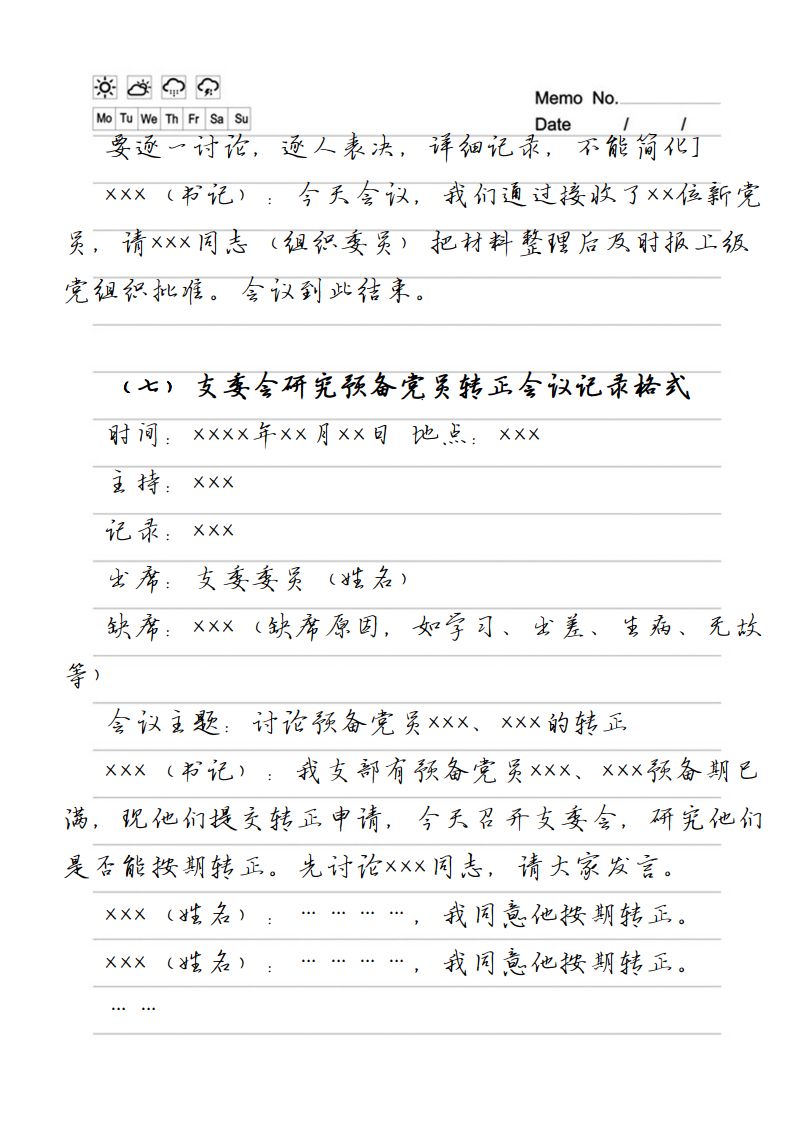 Memo No.
Mo Tu We Th Fr Sa Su
Date / /
要逐一讨论，逐人表决，详细记录，不能简化]
×××（书记）：今天会议，我们通过接收了××位新党
员，请×××同志（组织委员）把材料整理后及时报上级
党组织批准。会议到此结束。
（七）支委会研究预备党员转正会议记录格式
时间：××××年××月××日 地点：×××
主持：×××
记录：×××
出席：支委委员（姓名）
缺席：×××（缺席原因，如学习、出差、生病、无故
等）
会议主题：讨论预备党员×××、×××的转正
×××（书记）：我支部有预备党员×××、×××预备期已
满，现他们提交转正申请，今天召开支委会，研究他们
是否能按期转正。先讨论×××同志，请大家发言。
×××（姓名）：… … … …，我同意他按期转正。
×××（姓名）：… … … …，我同意他按期转正。
… …